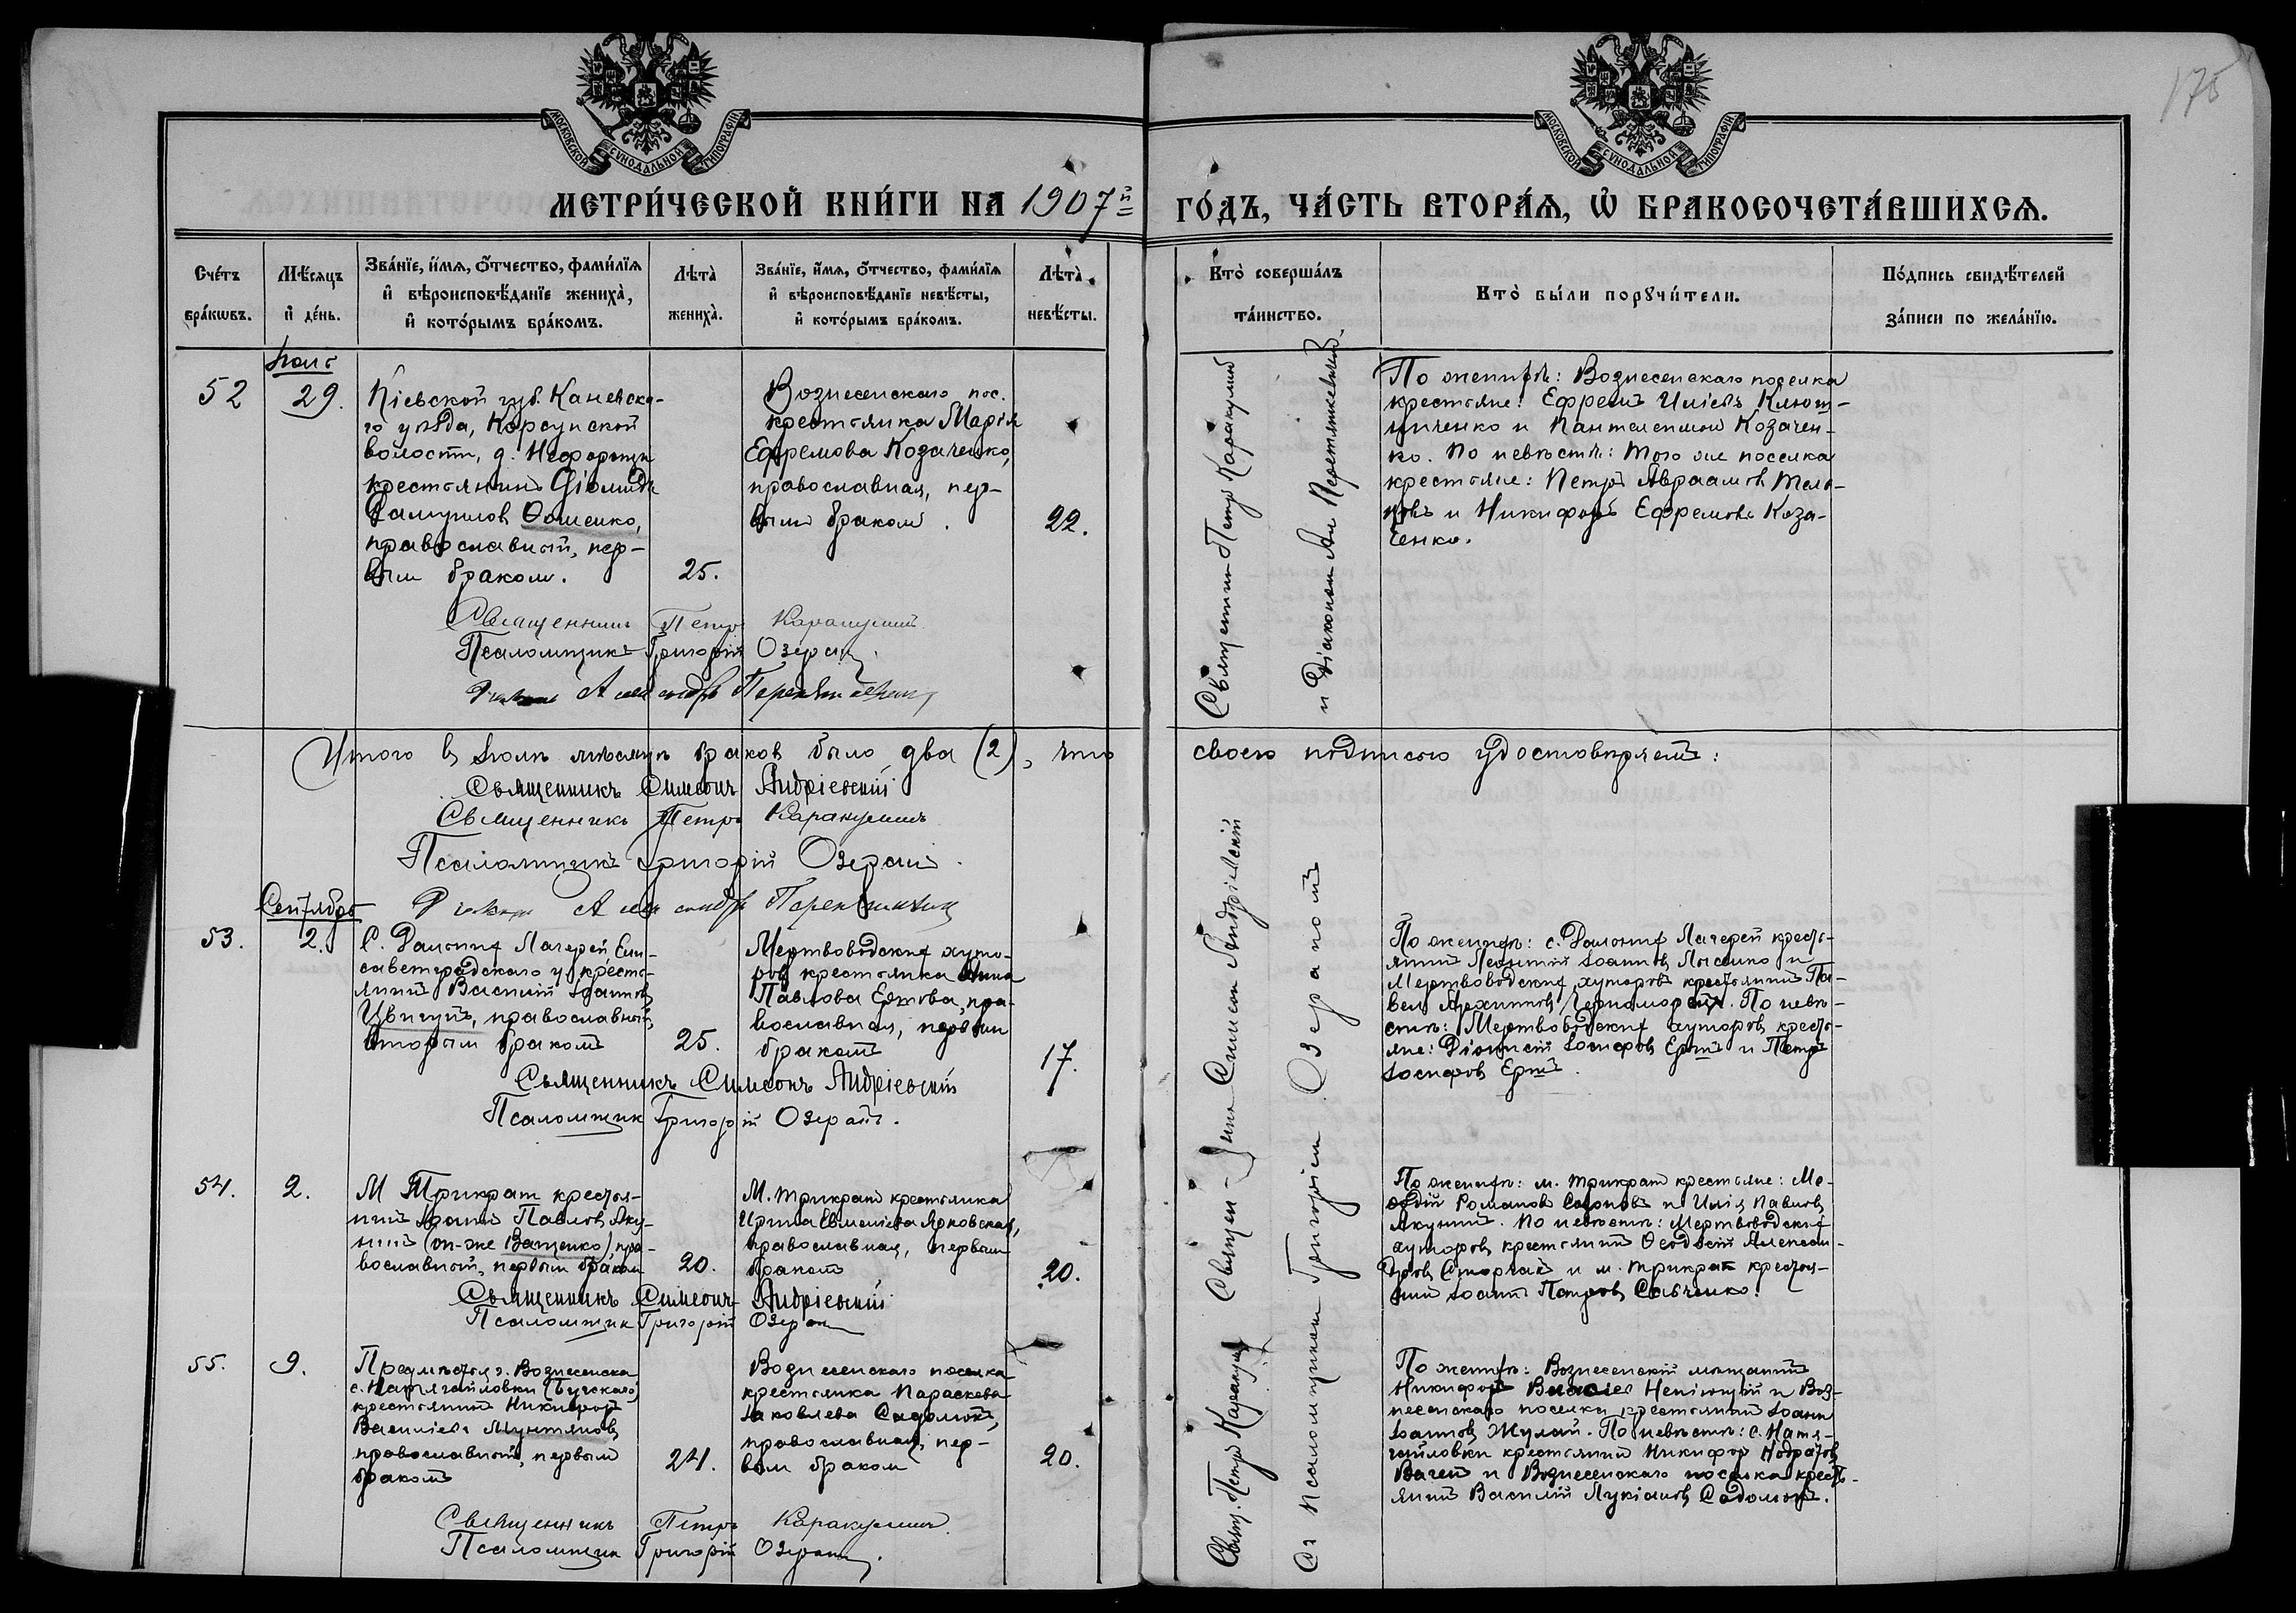 175
МОСКОВСКОЙ СѴНОДАЛЬНОЙ ТИПОГРАФІИ
МОСКОВСКОЙ СѴНОДАЛЬНОЙ ТИПОГРАФІИ
МЕТРИ́ЧЕСКОЙ КНИ́ГИ НА 1907й
ГО́ДЪ, ЧА́СТЬ ВТОРА́Ѧ, Ѽ БРАКОСОЧЕТА́ВШИХСѦ.
Сче́тъ
бра́кѡвъ.
Мѣ́сяцъ
и де́нь.
Зва́нїе, и́мѧ, ѻ́тчество, фами́лїѧ
и вѣроисповѣ́данїе жениха̀,
и кото́рымъ бра́комъ.
Лѣта̀
жениха̀.
Зва́нїе, и́мѧ, ѻ́тчество, фами́лїѧ
и вѣроисповѣ́данїе невѣ́сты,
и кото́рымъ бра́комъ.
Лѣта̀
невѣ́сты.
Кто̀ соверша́лъ
та́инство.
Кто̀ бы́ли порꙋчи́тели.
По́дпись свидѣ́телей
за́писи по жела́нїю.
Іюль
52
29.
Кіевской губ. Каневска-
го уѣзда, Корсунской
волости, д.
крестьянинъ
православный, пер-
вымъ бракомъ.
25.
Вознесенскаго пос.
крестьянка Марія
Ефремова Козаченко,
православная, пер-
вымъ бракомъ.
22.
Священникъ Петръ Каракулинъ
и Діакономъ
По женихѣ: Вознесенскаго поселка
крестьяне: Ефремъ Иліевъ Клют-
ниченко и Пантелеимонъ Козачен-
ко. По невѣстѣ: того же поселка
крестьяне: Петръ Авраамовъ
и Никифоръ Ефремовъ Коза-
ченко.
Священникъ Петръ Каракулинъ
Псаломщикъ Григорій Озеранъ
Александръ
Итого въ Іюлѣ мѣсяцѣ браковъ было два (2), что
своею подписью удостовѣряетъ:
Священникъ Симеонъ Андріевскій
Священникъ Петръ Каракулинъ
Псаломщикъ Григорій Озеранъ
Александръ
Сентябрь
53.
2.
С. Дамонитъ Лагерей Ели-
саветградскаго у. кресть-
янинъ Василій Іоанновъ
Цвигунъ, православный,
вторымъ бракомъ
25.
Мертвоводскихъ хуто-
ровъ крестьянка Анна
Павлова Ертова, пра-
вославная, первымъ
бракомъ
17.
Священ- Симеонъ Андріевскій
Съ псаломщикомъ Григоріемъ Озераномъ
По женихѣ: с. Дамонитъ Лагерей кресть-
янинъ Леонтій Іоанновъ Лысенко и
Мертвоводскихъ хуторовъ крестьянинъ Па-
велъ По невѣ-
стѣ: Мертвоводскихъ хуторовъ кресть-
яне: Діонисій Іосифовъ Ертъ и Петръ
Іосифовъ Ертъ.
Священникъ Симеонъ Андріевскій
Псаломщикъ Григорій Озеранъ.
54.
2.
М. Трикратъ крестья-
нинъ Іоаннъ Павловъ Яку-
нинъ (он-же Ващенко), пра-
вославный, первымъ бракомъ
20.
М. Трикратъ крестьянка
Ирина Евменіева Ярковская,
православная, первымъ
бракомъ
20.
По женихѣ: м. Трикратъ крестьяне: Ме-
одій Романовъ и Илія Павловъ
Якунинъ. По невѣстѣ: Мертвоводскихъ
хуторовъ крестьянинъ Ѳеодосій Алексан-
дровъ и м. Трикратъ крестья-
нинъ Іоаннъ Петровъ Савченко.
Священникъ Симеонъ Андріевскій
Псаломщикъ Григорій Озеранъ
55.
9.
Предмѣстья г. Вознесенска
с. Натягайловки (Бугскаго)
крестьянинъ Никифоръ
Василіевъ Мунтяновъ,
православный, первымъ
бракомъ
24.
Вознесенскаго поселка
крестьянка Параскева
Іаковлева Садомова,
православная, пер-
вымъ бракомъ
20.
Свящ. Петръ Каракулинъ
По женихѣ: Вознесенскій мѣщанинъ
Никифоръ и Воз-
несенскаго поселка крестьянинъ Іоаннъ
Іоанновъ Жулай. По невѣстѣ: с. Натя-
гайловки крестьянинъ Никифоръ
и Вознесенскаго поселка кресть-
янинъ Василій Лукіановъ
Священникъ Петръ Каракулинъ
Псаломщикъ Григорій Озеранъ.